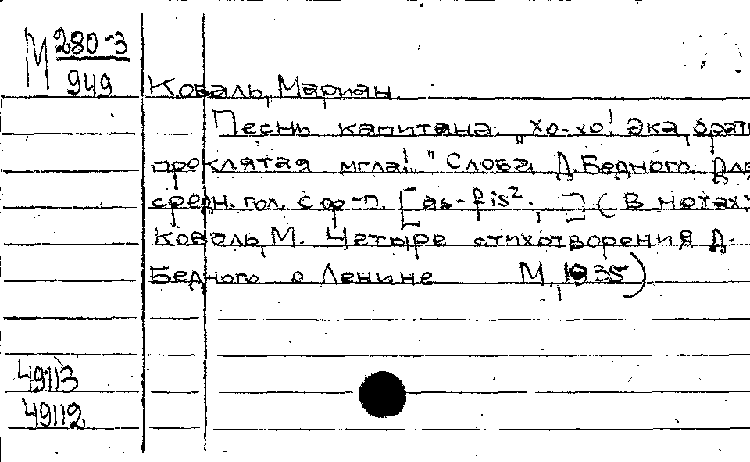 М 280-3
949
Коваль, Мариан.
Песнь капитана „хо-хо! эка, брат
проклятая мгла!" Слова Д. Бедного. Для
средн. гол. с ф-п. [as-fis². ] (В нотах:
Коваль, М. Четыре стихотворения Д.
Бедного о Ленине М., 1935)
49113
49112